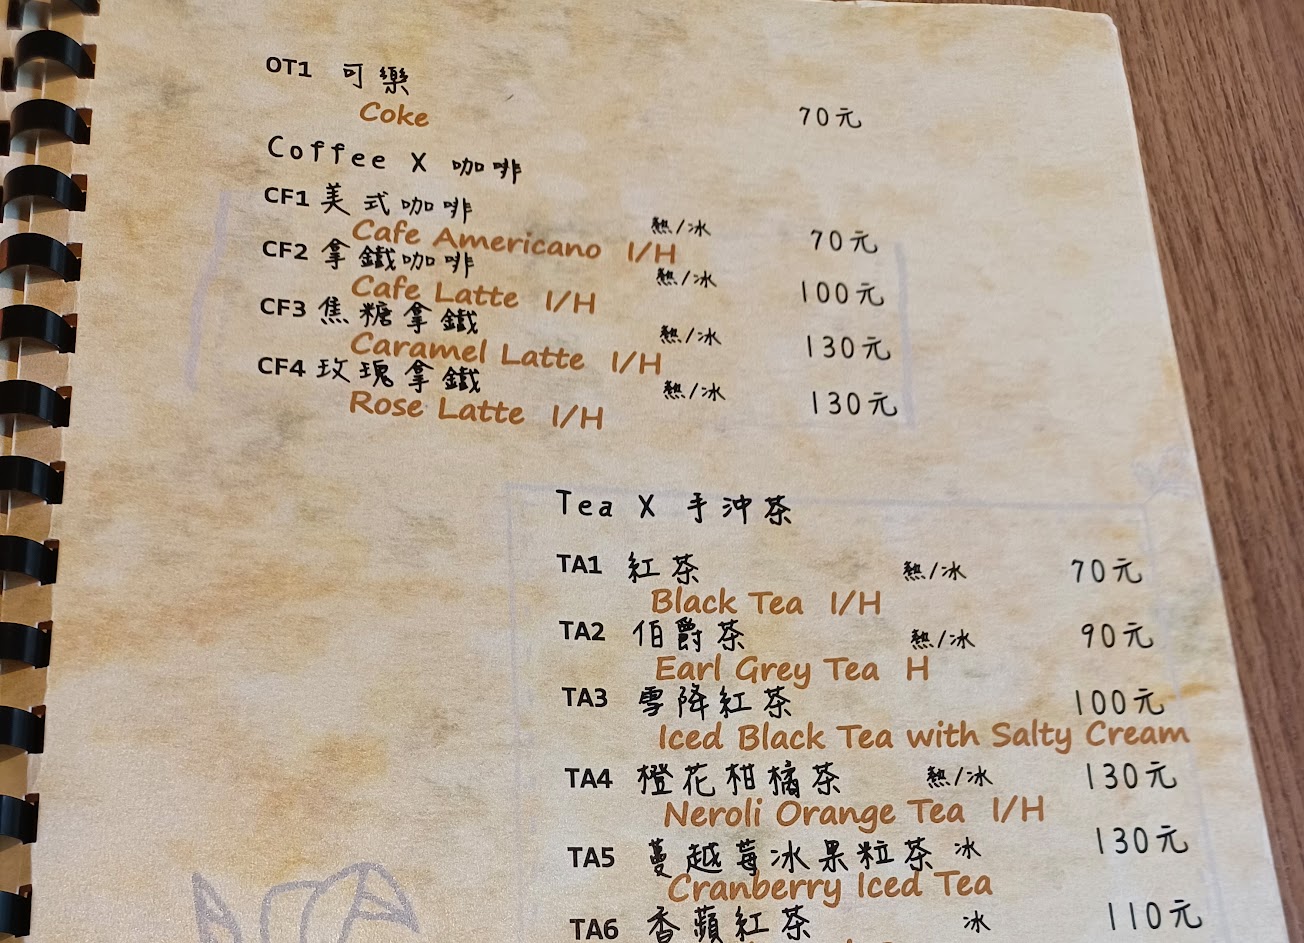 OT1 可樂
Coke 70元
Coffee X 咖啡
CF1 美式咖啡 熱/冰
Cafe Americano I/H 70元
CF2 拿鐵咖啡 熱/冰
Cafe Latte I/H 100元
CF3 焦糖拿鐵 熱/冰
Caramel Latte I/H 130元
CF4 玫瑰拿鐵 熱/冰
Rose Latte I/H 130元
Tea X 手沖茶
TA1 紅茶 熱/冰 70元
Black Tea I/H
TA2 伯爵茶 熱/冰 90元
Earl Grey Tea H
TA3 雪降紅茶 100元
Iced Black Tea with Salty Cream
TA4 橙花柑橘茶 熱/冰 130元
Neroli Orange Tea I/H
TA5 蔓越莓冰果粒茶 冰 130元
Cranberry Iced Tea
TA6 香蘋紅茶 冰 110元